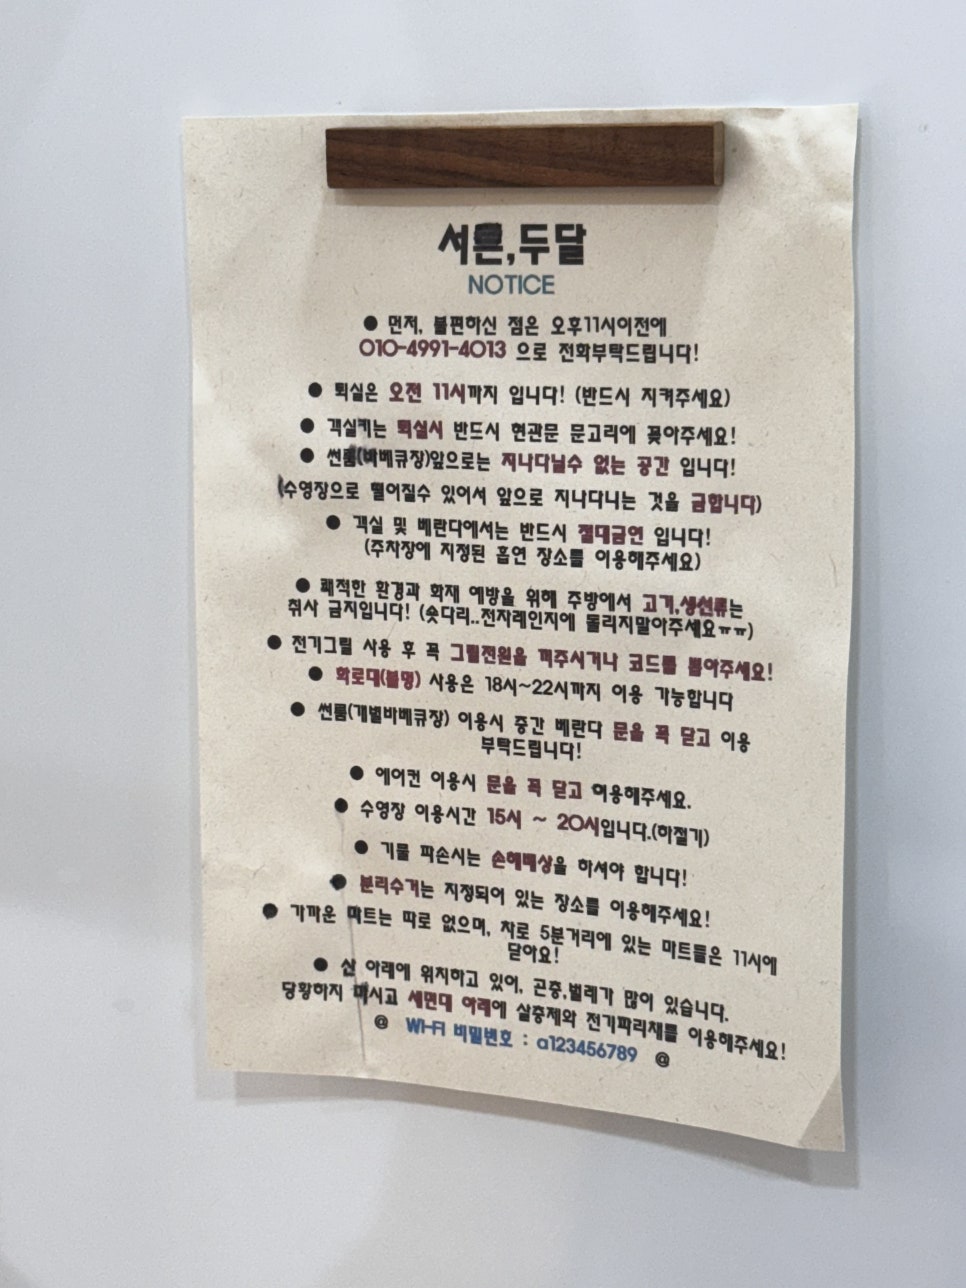 서른,두달
NOTICE
● 먼저, 불편하신 점은 오후11시이전에
010-4991-4013 으로 전화부탁드립니다!
● 퇴실은 오전 11시까지 입니다! (반드시 지켜주세요)
● 객실키는 퇴실시 반드시 현관문 문고리에 꽂아주세요!
● 썬룸(바베큐장)앞으로는 지나다닐수 없는 공간 입니다!
(수영장으로 떨어질수 있어서 앞으로 지나다니는 것을 금합니다)
● 객실 및 베란다에서는 반드시 절대금연 입니다!
(주차장에 지정된 흡연 장소를 이용해주세요)
● 쾌적한 환경과 화재 예방을 위해 주방에서 고기,생선류는
취사 금지입니다! (숏다리..전자레인지에 돌리지말아주세요ㅠㅠ)
● 전기그릴 사용 후 꼭 그릴전원을 꺼주시거나 코드를 뽑아주세요!
● 화로대(불멍) 사용은 18시~22시까지 이용 가능합니다
● 썬룸(개별바베큐장) 이용시 중간 베란다 문을 꼭 닫고 이용
부탁드립니다!
● 에어컨 이용시 문을 꼭 닫고 이용해주세요.
● 수영장 이용시간 15시 ~ 20시입니다.(하절기)
● 기물 파손시는 손해배상을 하셔야 합니다!
● 분리수거는 지정되어 있는 장소를 이용해주세요!
● 가까운 마트는 따로 없으며, 차로 5분거리에 있는 마트들은 11시에
닫아요!
● 산 아래에 위치하고 있어, 곤충,벌레가 많이 있습니다.
당황하지 마시고 세면대 아래에 살충제와 전기파리채를 이용해주세요!
@ WI-FI 비밀번호 : a123456789 @